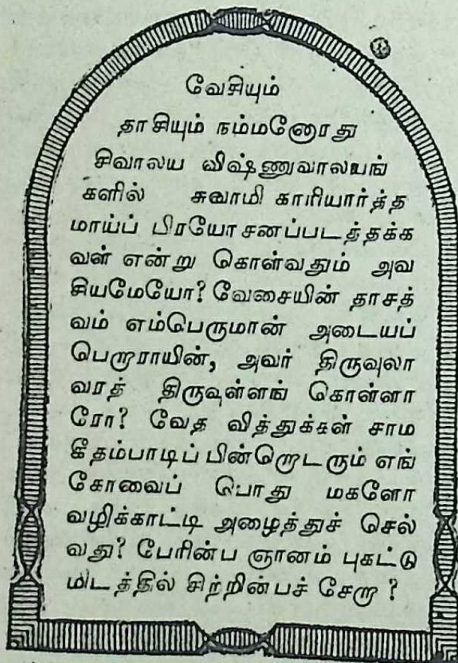 வேசியும்
தாசியும் நம்மனோரது
சிவாலய விஷ்ணுவாலயங்
களில் சுவாமி காரியார்த்த
மாய்ப் பிரயோசனப்படத்தக்க
வள் என்று கொள்வதும் அவ
சியமேயோ? வேசையின் தாசத்
வம் எம்பெருமான் அடையப்
பெறாராயின், அவர் திருவுலா
வரத் திருவுள்ளங் கொள்ளா
ரோ? வேத வித்துக்கள் சாம
கீதம்பாடிப் பின்றொடரும் எங்
கோவைப் பொது மகளோ
வழிக்காட்டி அழைத்துச் செல்
வது? பேரின்ப ஞானம் புகட்டு
மிடத்தில் சிற்றின்பச் சேறா?